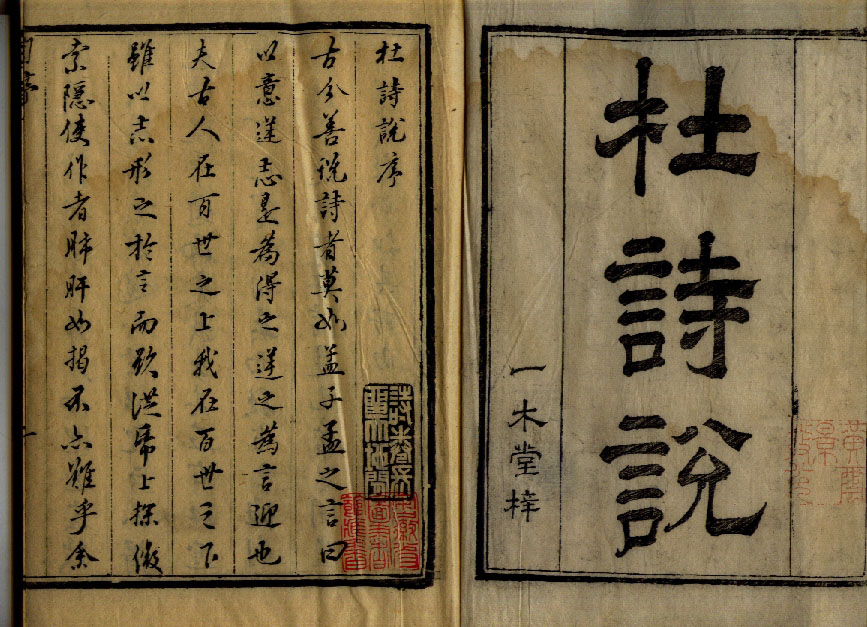 杜詩說
一木堂梓
杜詩說序
古今善說詩者莫如孟子孟之言曰
以意逆志是為得之逆之為言迎也
夫古人在百世之上我在百世之下
雖以志形之於言而欲從
索隱使作者肺肝如揭不亦難乎余